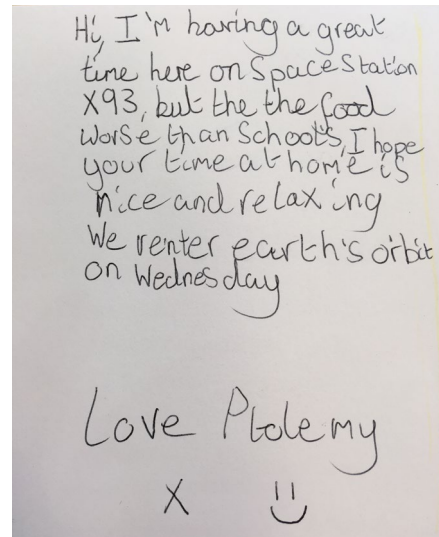 Hi, I'm having a great
time here on Space Station
X93, but the the food
worse than School's, I hope
your time at home is
nice and relaxing
We renter earth's orbit
on Wednesday
Love Ptolemy
X :)